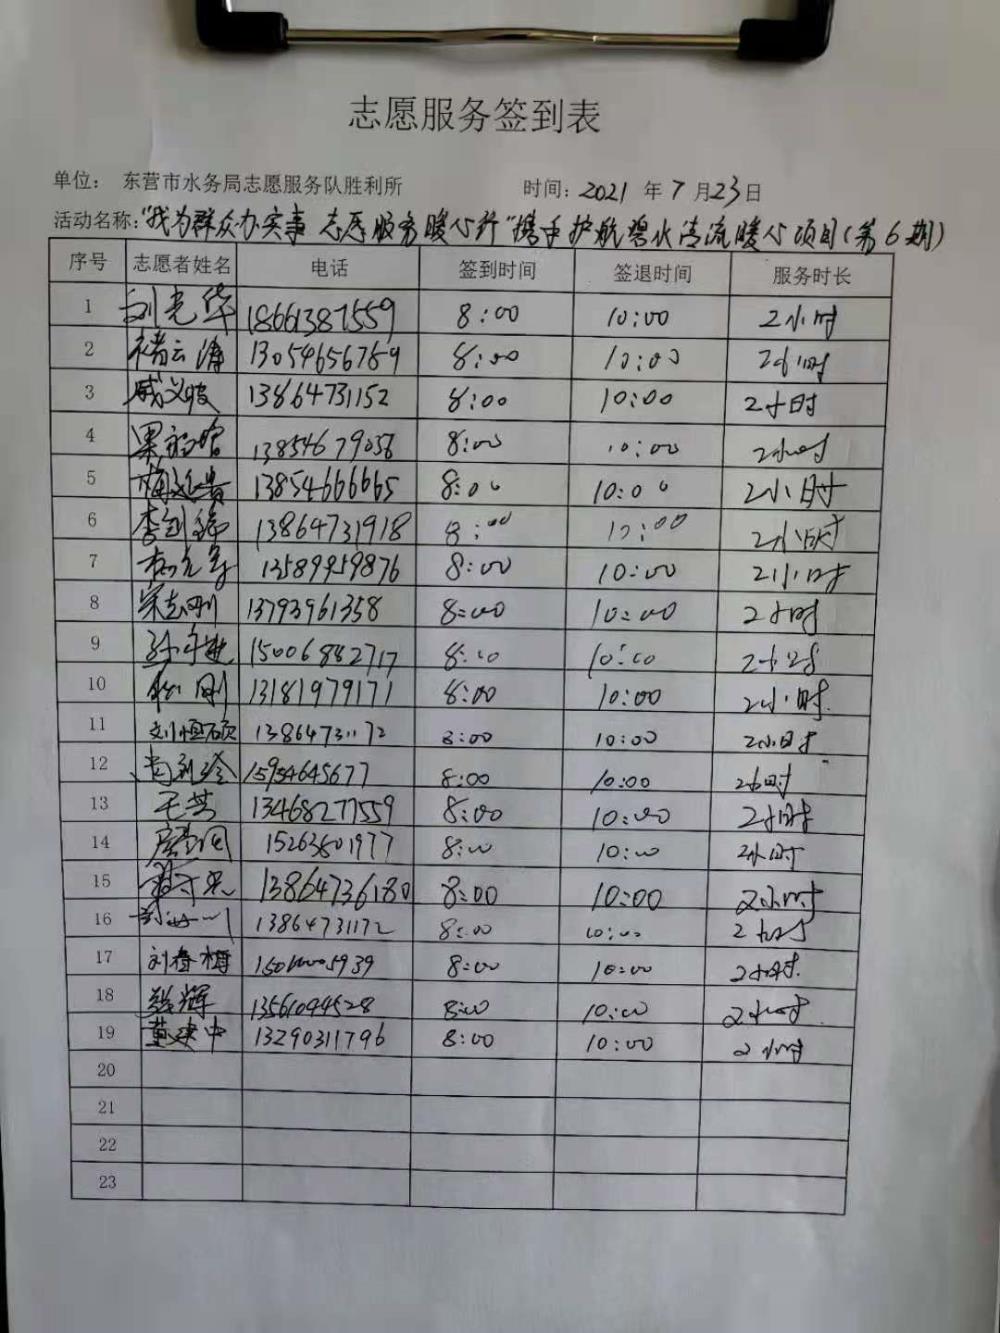 志愿服务签到表
单位： 东营市水务局志愿服务队胜利所 时间：2021 年 7 月 23 日
活动名称："我为群众办实事 志愿服务暖心行"携手护航碧水清流暖心项目(第6期)
序号 志愿者姓名 电话 签到时间 签退时间 服务时长
1 刘光华 18661387559 8:00 10:00 2小时
2 褚云涛 13054656789 8:00 10:00 2小时
3 13864731152 8:00 10:00 2小时
4 13854679058 8:00 10:00 2小时
5 13854666665 8:00 10:00 2小时
6 13864731918 8:00 10:00 2小时
7 13589959876 8:00 10:00 2小时
8 宋志刚 13793961358 8:00 10:00 2小时
9 15006882717 8:00 10:00 2小时
10 13181979171 8:00 10:00 2小时
11 刘恒硕 13864731172 8:00 10:00 2小时
12 15954645677 8:00 10:00 2小时
13 王芸 13468277559 8:00 10:00 2小时
14 15263801977 8:00 10:00 2小时
15 13864736180 8:00 10:00 2小时
16 13864731172 8:00 10:00 2小时
17 刘春梅 8:00 10:00 2小时
18 张辉 13561094528 8:00 10:00 2小时
19 董建中 13290311796 8:00 10:00 2小时
20
21
22
23